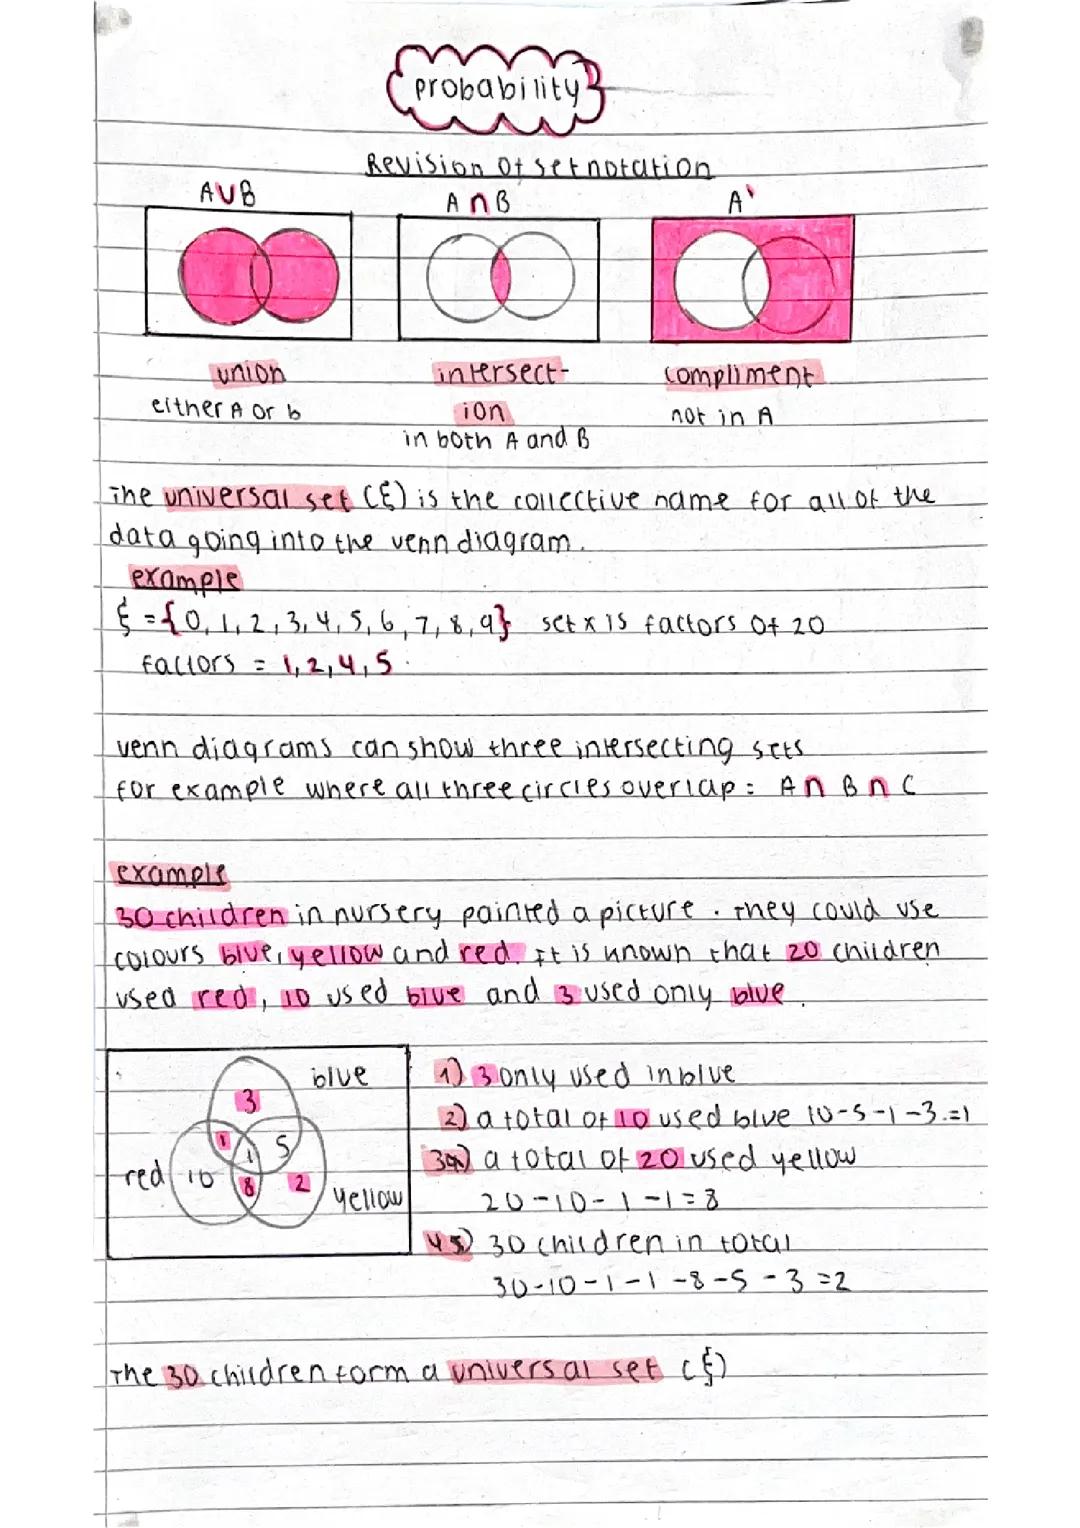 probability
Revision of set notation
A∪B A∩B A'
union intersect- compliment
either A or b ion not in A
in both A and B
The universal set (ξ) is the collective name for all of the
data going into the venn diagram.
example
ξ = {0, 1, 2, 3, 4, 5, 6, 7, 8, 9} set x is factors of 20
factors = 1, 2, 4, 5.
venn diagrams can show three intersecting sets
for example where all three circles overlap: A ∩ B ∩ C
example
30 children in nursery painted a picture. They could use
colours blue, yellow and red. It is known that 20 children
used red, 10 used blue and 3 used only blue.
blue 1) 3 only used in blue
3
2) a total of 10 used blue 10-5-1-3=1
1 1 5
3) a total of 20 used yellow
red 10 8 2 yellow
20-10-1-1=8
4) 30 children in total
30-10-1-1-8-5-3=2
The 30 children form a universal set (ξ)